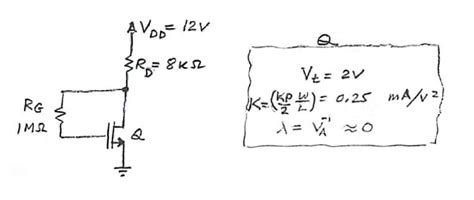 V_DD = 12V
R_D = 8KΩ
R_G
1MΩ
Q
Q
V_t = 2V
K = (KP/2 W/L) = 0.25 mA/V²
λ = V_A⁻¹ ≈ 0